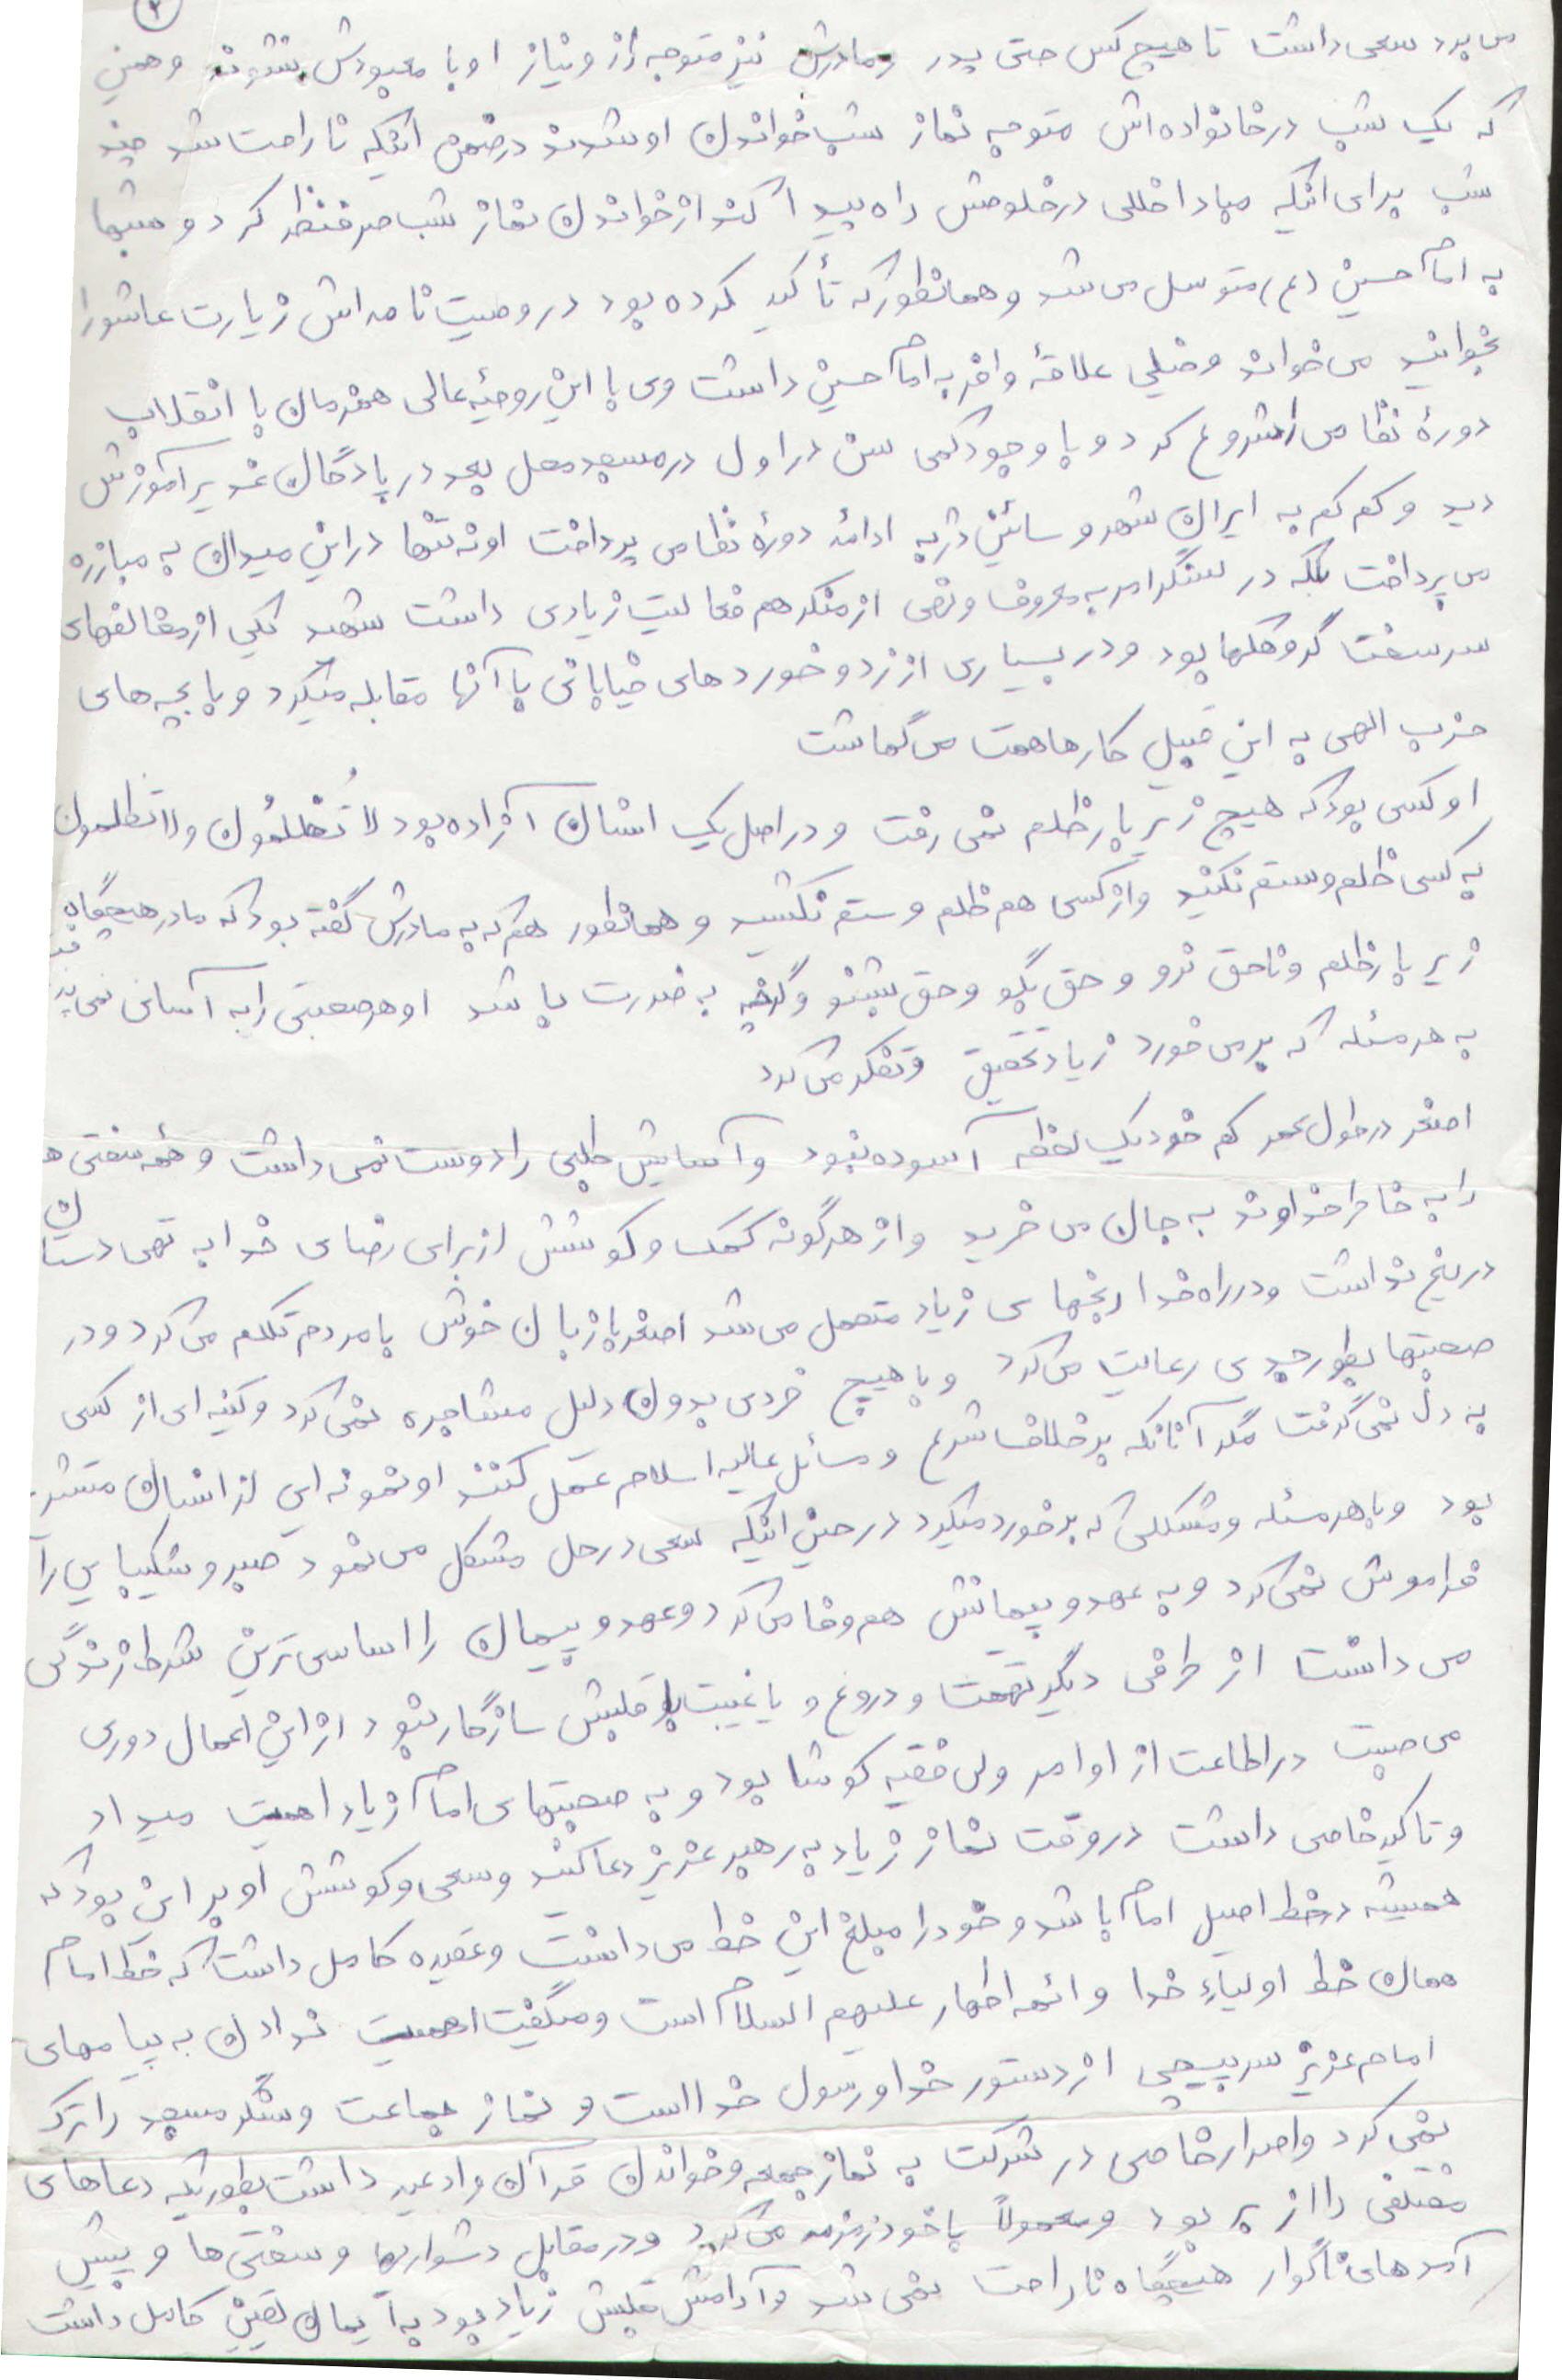 ۲
می برد سعی داشت تا هیچ کس حتی پدر و مادرش نیز متوجه راز و نیاز او با معبودش نشوند و همین
که یک شب در خانواده اش متوجه نماز شب خواندن او شدند درضمن اینکه ناراحت شد چند
شب برای اینکه مبادا خللی در خلوصش راه پیدا کند از خواندن نماز شب صرفنظر کرد و شبها
به امام حسین (ع) متوسل می شد و همانطور که تأکید کرده بود در وصیت نامه اش زیارت عاشورا
بخوانید می خواند و خیلی علاقهٔ وافر به امام حسین داشت وی با این روحیهٔ عالی همزمان با انقلاب
دورهٔ نظامی را شروع کرد و با وجود کمی سن در اول در مسجد محل بعد در پادگان غدیر آموزش
دید و کم کم به ایران شهر و سائین دژ به ادامهٔ دورهٔ نظامی پرداخت او نه تنها در این میدان به مبارزه
می پرداخت بلکه در سنگر امر به معروف و نهی از منکر هم فعالیت زیادی داشت شهید یکی از مخالفهای
سرسخت گروهکها بود و در بسیاری از زد و خورد های خیابانی با آنها مقابله میکرد و با بچه های
حزب الهی به این قبیل کارها همت می گماشت
او کسی بود که هیچ زیر بار ظلم نمی رفت و در اصل یک انسان آزاده بود لا تُظلمُون ولا تظلمون
به کسی ظلم و ستم نکنید و از کسی هم ظلم و ستم نکشید و همانطور هم که به مادرش گفته بود که مادر هیچگاه
زیر بار ظلم و ناحق نرو و حق بگو و حق بشنو وگرچه به ضررت باشد او هر صحبتی را به آسانی نمی پذ
به هر مسئله که برمی خورد زیاد تحقیق و تفکر می کرد
اصغر در طول عمر کم خود یک لحظه آسوده نبود و آسایش طلبی را دوست نمی داشت و همه سختی ه
را به خاطر خداوند به جان می خرید و از هر گونه کمک و کوشش از برای رضای خدا به تهی دستان
دریغ نداشت و در راه خدا رنجهای زیاد متحمل می شد اصغر با زبان خوش با مردم تکلم می کرد و در
صحبتها بطور جدی رعایت می کرد و با هیچ فردی بدون دلیل مشاجره نمی کرد و کینه ای از کسی
به دل نمی گرفت مگر آنانکه بر خلاف شرع و مسائل عالیه اسلام عمل کنند او نمونه ای از انسان متشر
بود و با هر مسئله و مشکلی که برخورد میکرد در حین اینکه سعی در حل مشکل می نمود صبر و شکیبایی را
فراموش نمی کرد و به عهد و پیمانش هم وفا می کرد و عهد و پیمان را اساسی ترین شرط زندگی
می دانست از طرفی دیگر تهمت و دروغ و یا غیبت با قلبش سازگار نبود از این اعمال دوری
می جست در اطاعت از اوامر ولی فقیه کوشا بود و به صحبتهای امام زیاد اهمیت میداد
و تاکید خاصی داشت در وقت نماز زیاد به رهبر عزیز دعا کنید و سعی و کوشش او بر این بود که
همیشه در خط اصیل امام باشد و خود را مبلغ این خط می دانست و عقیده کامل داشت که خط امام
همان خط اولیاءِ خدا و ائمه اطهار علیهم السلام است و میگفت اهمیت ندادن به پیامهای
امام عزیز سرپیچی از دستور خدا و رسول خدا است و نماز جماعت و سنگر مسجد را ترک
نمی کرد و اصرار خاصی در شرکت به نماز جمعه و خواندن قرآن و ادعیه داشت بطوریکه دعاهای
مختلفی را از بر بود و معمولاً با خود زمزمه می کرد و در مقابل دشواریها و سختی ها و پیش
آمدهای ناگوار هیچگاه ناراحت نمی شد و آرامش قلبش زیاد بود به ایمان یقین کامل داشت